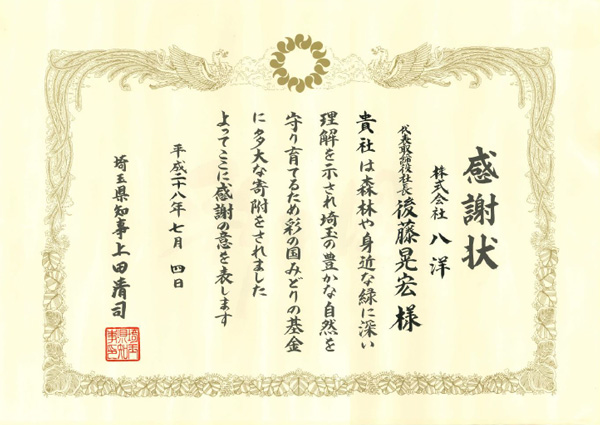 感謝状
株式会社 八洋
代表取締役社長 後藤晃宏 様
貴社は森林や身近な緑に深い
理解を示され埼玉の豊かな自然を
守り育てるため彩の国みどりの基金
に多大な寄附をされました
よってここに感謝の意を表します
平成二十八年七月 四日
埼玉県知事 上田清司